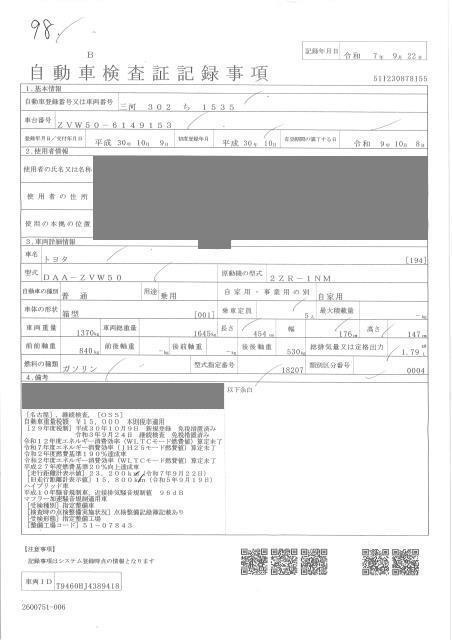 98.
B
記録年月日 令和 7年 9月 22日
自動車検査証記録事項
511230878155
1.基本情報
自動車登録番号又は車両番号 三河 302 ち 1535
車台番号 ZVW50-6149153
登録年月日/交付年月日 平成 30年 10月 9日 初度登録年月 平成 30年 10月 有効期間の満了する日 令和 9年 10月 8日
2.使用者情報
使用者の氏名又は名称
使用者の住所
使用の本拠の位置
3.車両詳細情報
車名 トヨタ [194]
型式 DAA-ZVW50 原動機の型式 2ZR-1NM
自動車の種別 普通 用途 乗用 自家用・事業用の別 自家用
車体の形状 箱型 [001] 乗車定員 5人 最大積載量 -kg
車両重量 1370kg 車両総重量 1645kg 長さ 454cm 幅 176cm 高さ 147cm
前前軸重 840kg 前後軸重 -kg 後前軸重 -kg 後後軸重 530kg 総排気量又は定格出力 1.79L
燃料の種類 ガソリン 型式指定番号 18207 類別区分番号 0004
4.備考
以下余白
[名古屋],継続検査,[OSS]
自動車重量税額 ¥15,000 本則税率適用
[29年度税制]平成30年10月9日 新規登録 免税措置済み
令和3年9月24日 継続検査 免税措置済み
令和12年度エネルギー消費効率(WLTCモード燃費値)算定未了
令和7年度エネルギー消費効率(JH25モード燃費値)算定未了
令和2年度燃費基準190%達成車
令和2年度エネルギー消費効率(WLTCモード燃費値)算定未了
平成27年度燃費基準20%向上達成車
[走行距離計表示値]23,200km(令和7年9月22日)
[旧走行距離計表示値]15,800km(令和5年9月19日)
ハイブリッド車
平成10年騒音規制車,近接排気騒音規制値 96dB
マフラー加速騒音規制適用車
[受検種別]指定整備車
[検査時の点検整備実施状況]点検整備記録簿記載あり
[受検形態]指定整備工場
[整備工場コード]51-07843
【注意事項】
記録事項はシステム登録時点の情報となります
車両ID T9460HJ4389418
2600751-006